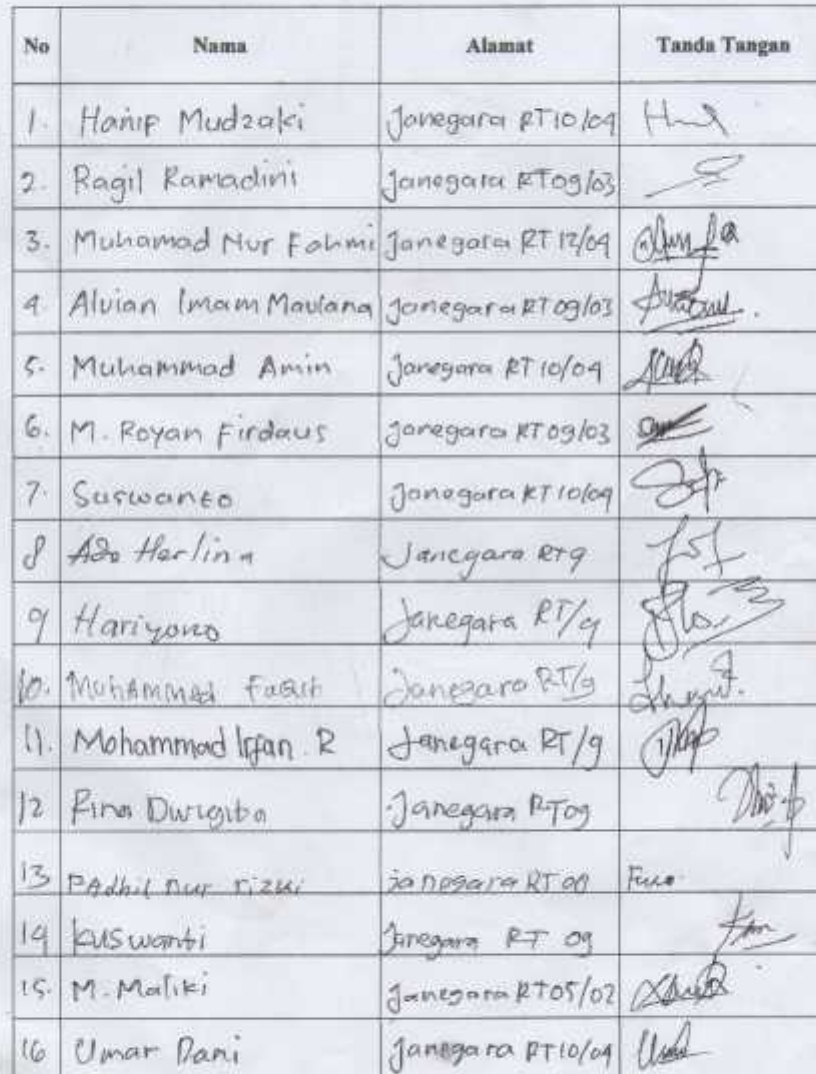 No Nama Alamat Tanda Tangan
1. Hanip Mudzaki Janegara RT10/04
2. Ragil Ramadini Janegara RT09/03
3. Muhamad Nur Fahmi Janegara RT 12/04
4. Alvian Imam Maulana Janegara RT09/03
5. Muhammad Amin Janegara RT 10/04
6. M. Royan Firdaus Janegara RT09/03
7. Suswanto Janegara RT10/04
8 Herlina Janegara RT9
9 Hariyono Janegara RT/9
10. Muhammad Janegara RT/9
11. Mohammad Irfan R Janegara RT/9
12 Janegara RT09
13 Padhil nur rizki janegara RT
14 Kuswanti Janegara RT 09
15. M. Maliki Janegara RT05/02
16 Umar Dani Janegara RT10/04